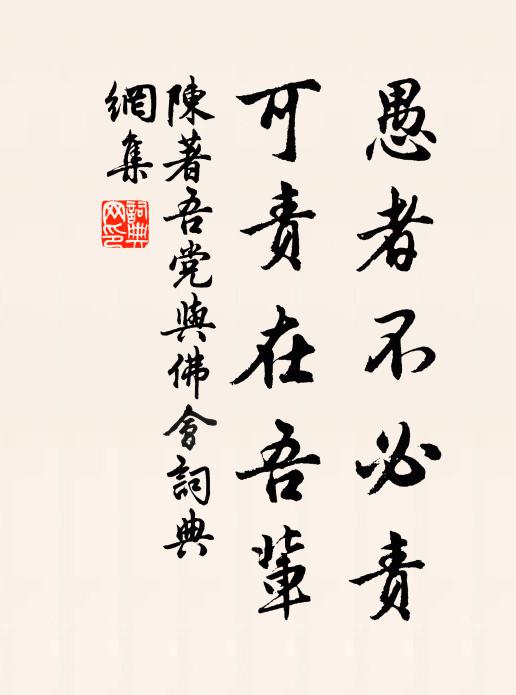 愚者不必责
可责在吾輩
陳著吾党與佛會詞典
網集
詞典
网印